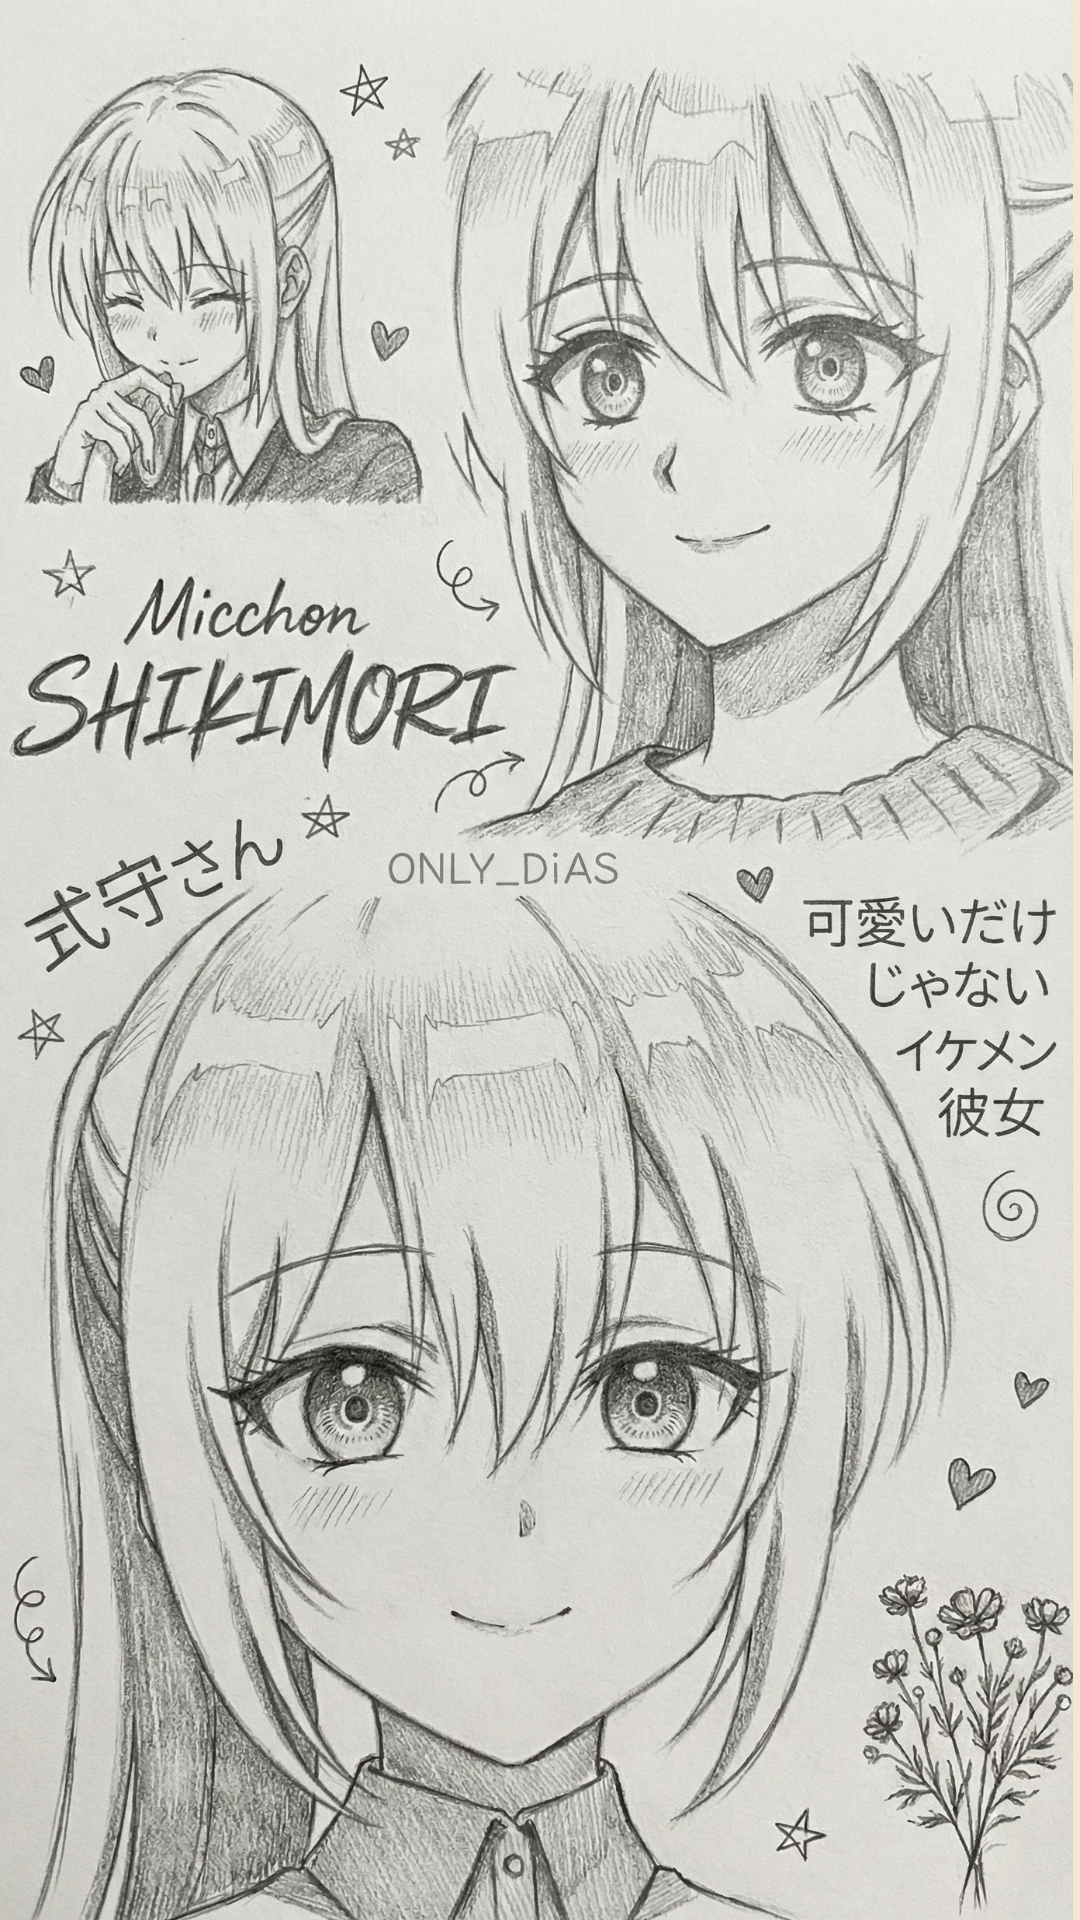 Micchon
SHIKIMORI
式守さん
ONLY_DiAS
可愛いだけ
じゃない
イケメン
彼女